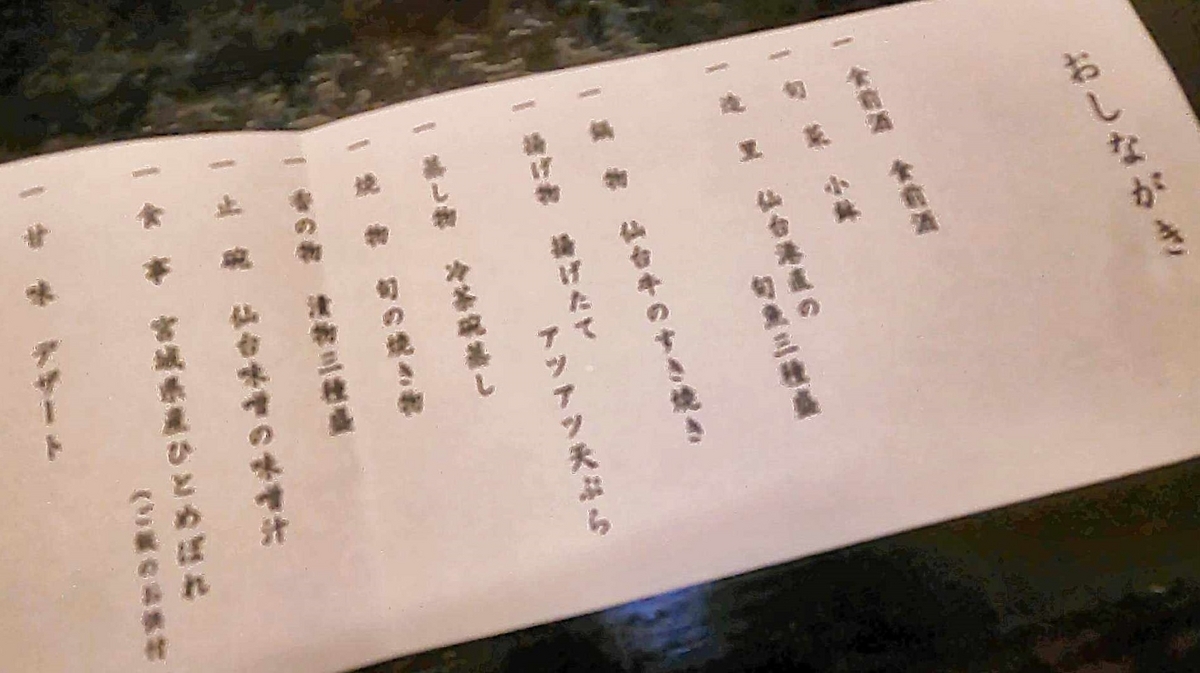 おしながき
一 食前酒 食前酒
一 旬菜 小鉢
一 造里 仙台港直の
旬魚三種盛
一 鍋物 仙台牛のすき焼き
一 揚げ物 揚げたて
アツアツ天ぷら
一 蒸し物 冷茶碗蒸し
一 焼物 旬の焼き物
一 香の物 漬物三種盛
一 止碗 仙台味噌の味噌汁
一 食事 宮城県産ひとめぼれ
(ご飯のお供付
一 甘味 デザート